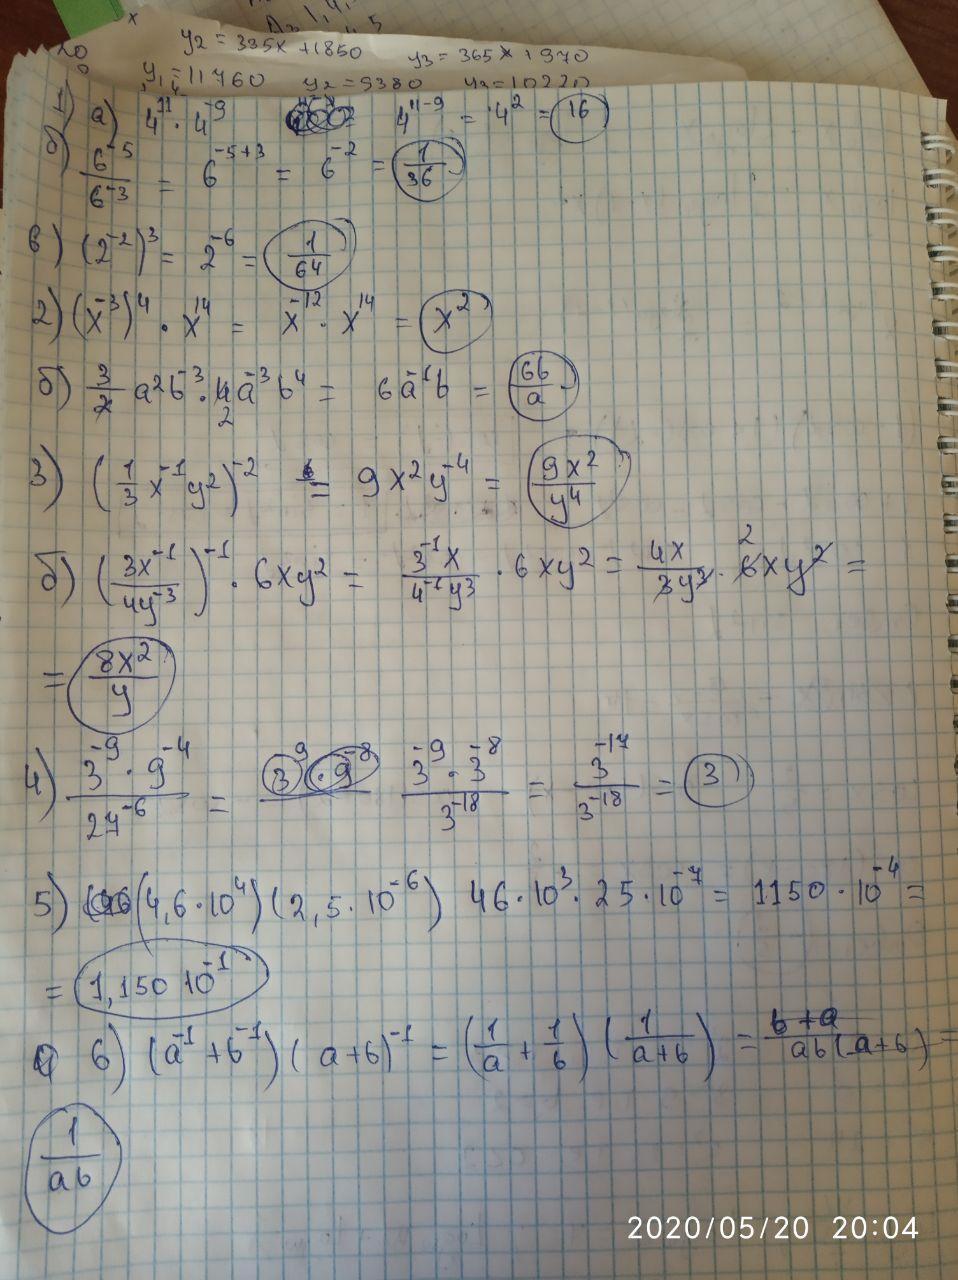 y₂ = 335x + 1850 y₃ = 365x + 970
y₁ = 11760 y₂ = 9380 y₃ = 10220
1) а) 4¹¹ · 4⁻⁹ 4¹¹⁻⁹ = 4² = 16
б) 6⁻⁵/6⁻³ = 6⁻⁵⁺³ = 6⁻² = 1/36
в) (2⁻²)³ = 2⁻⁶ = 1/64
2) (x⁻³)⁴ · x¹⁴ = x⁻¹² · x¹⁴ = x²
б) 3/2 a²b⁻³ · 4a⁻³b⁴ = 6a⁻¹b = 6b/a
3) (1/3 x⁻¹y²)⁻² = 9x²y⁻⁴ = 9x²/y⁴
б) (3x⁻¹/4y⁻³)⁻¹ · 6xy² = 3⁻¹x/4⁻¹y³ · 6xy² = 4x/3y³ · 6xy² =
= 8x²/y
4) 3⁻⁹ · 9⁻⁴/27⁻⁶ = 3⁻⁹ · 3⁻⁸/3⁻¹⁸ = 3⁻¹⁷/3⁻¹⁸ = 3
5) (4,6 · 10⁴)(2,5 · 10⁻⁶) 46 · 10³ · 25 · 10⁻⁷ = 1150 · 10⁻⁴ =
= 1,150 10⁻¹
6) (a⁻¹ + b⁻¹)(a + b)⁻¹ = (1/a + 1/b)(1/a+b) = b+a/ab(a+b) =
1/ab
2020/05/20 20:04